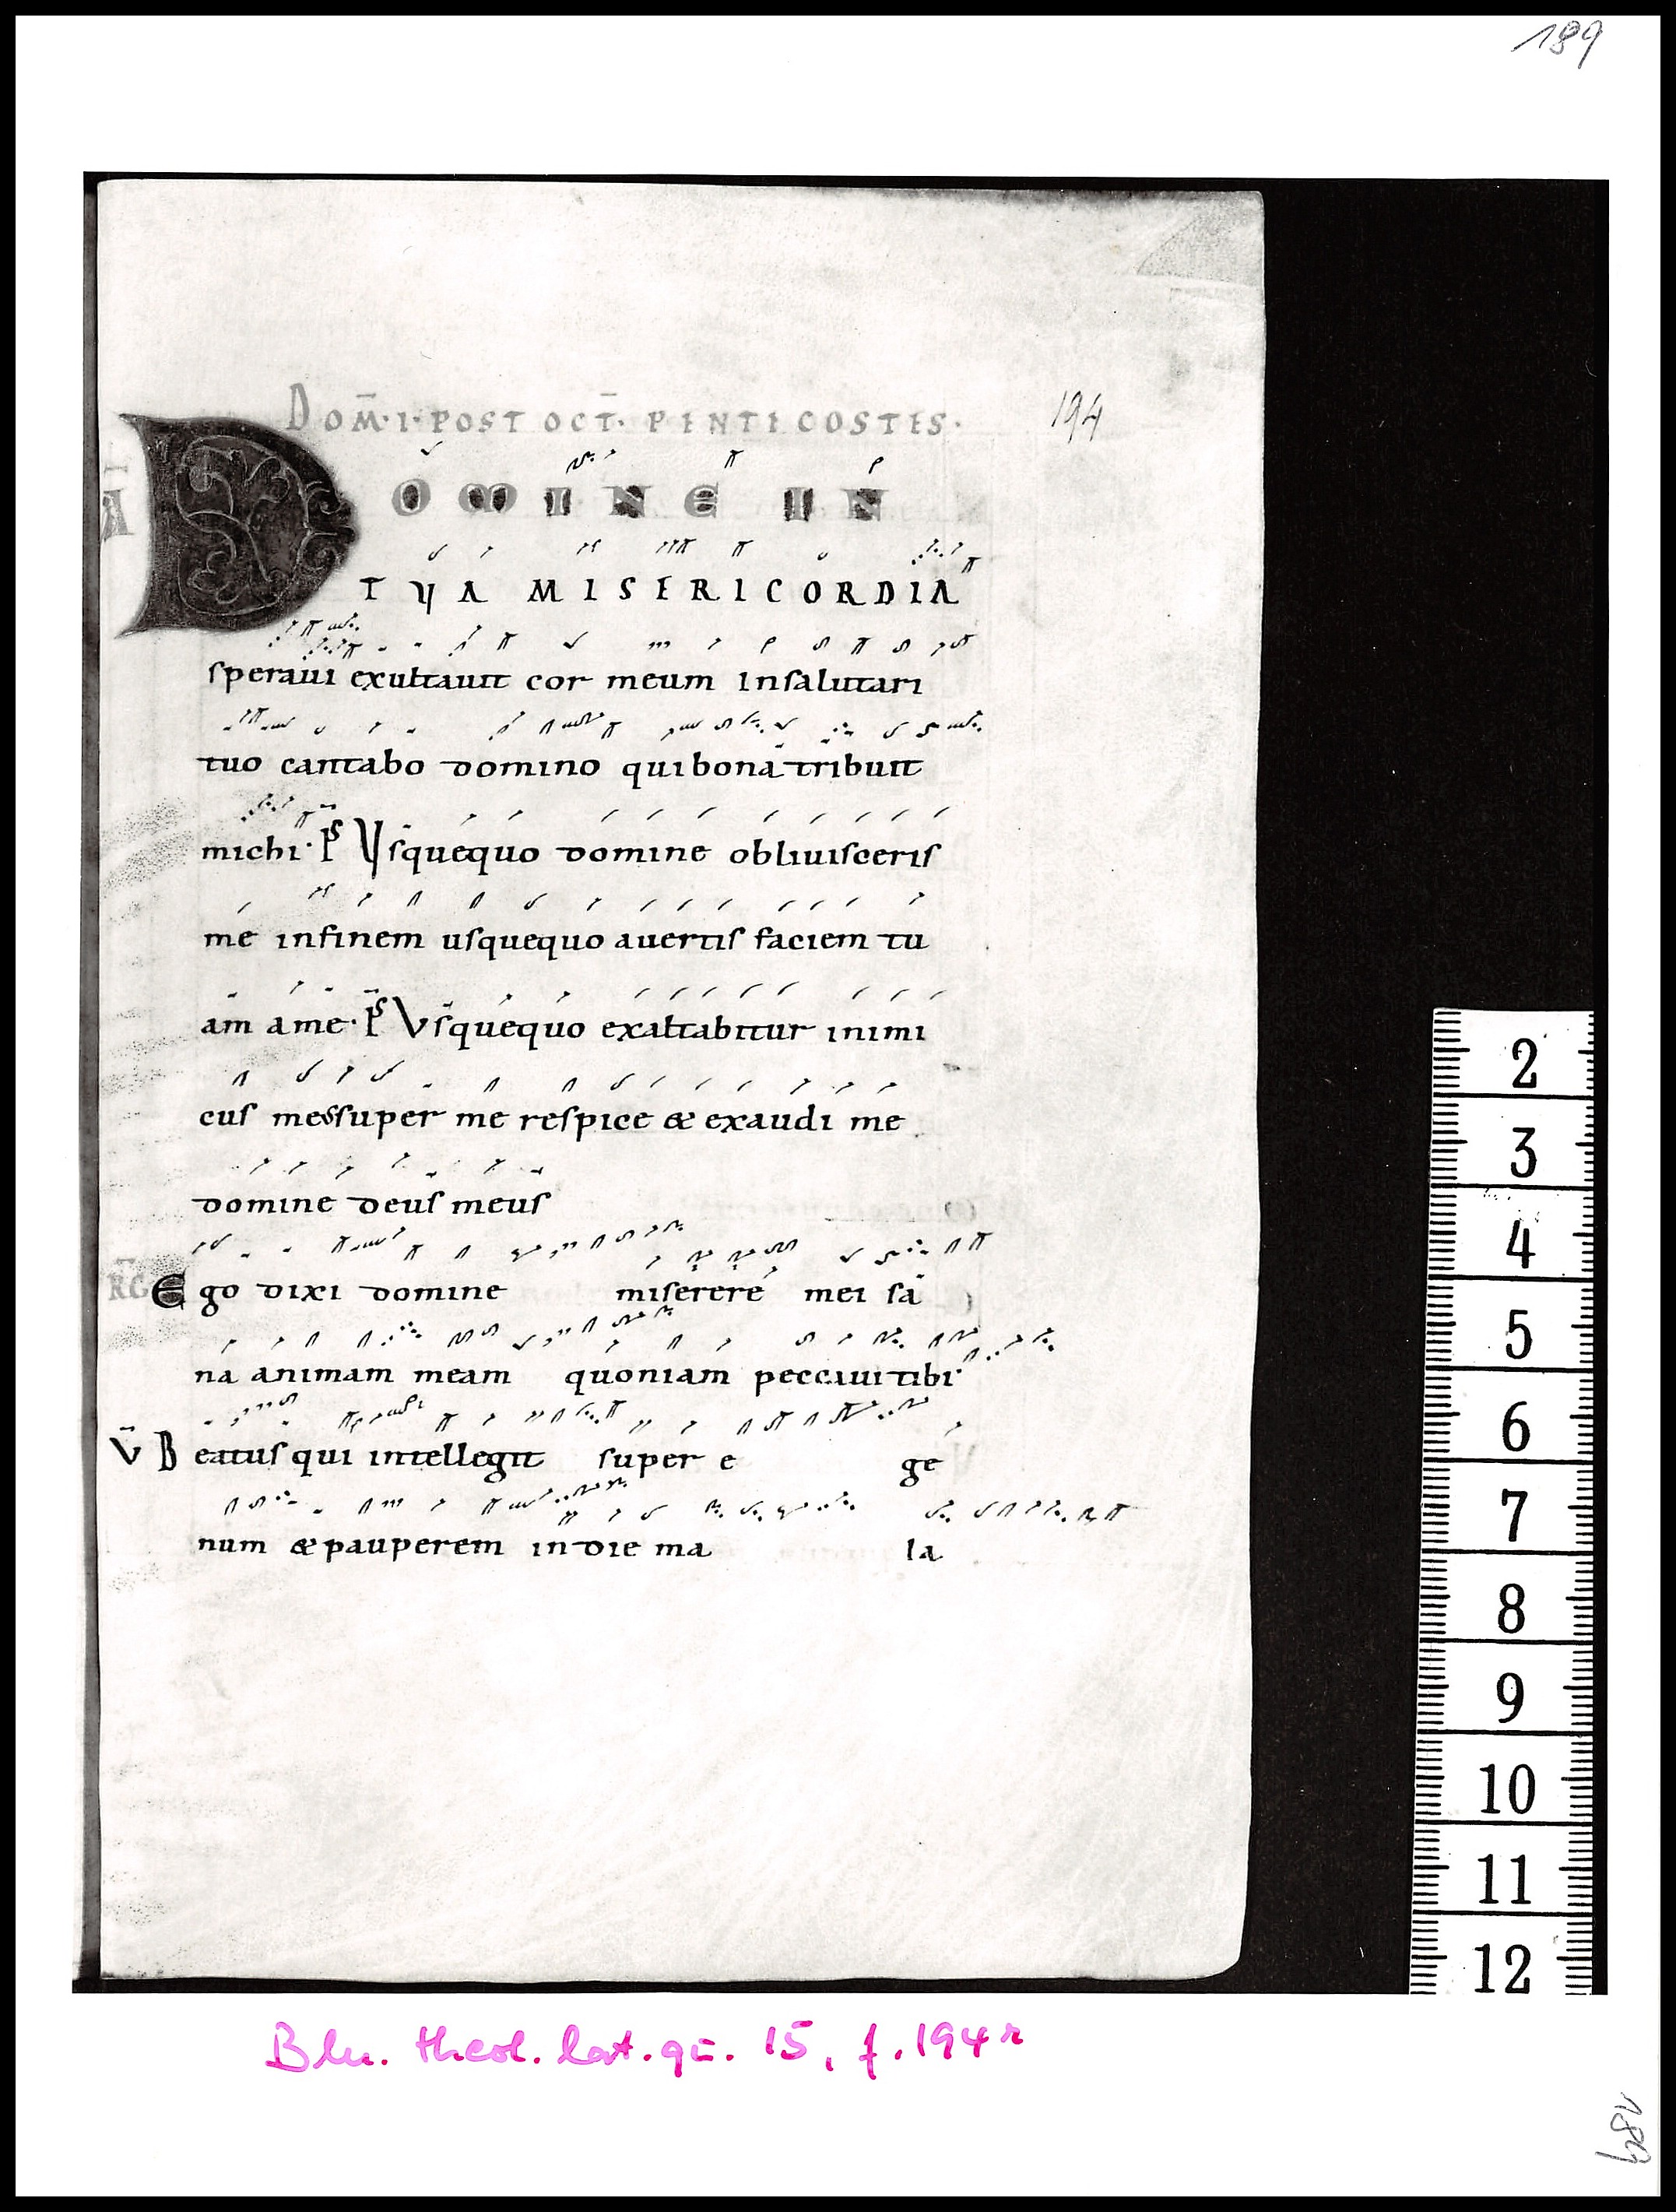 189
DOM̄·I·POST OCT̄· PENTICOSTES·
194
Ā
DOMINE IN
TUA MISERICORDIA
speraui exultauit cor meum insalutari
tuo cantabo domino quibona tribuit
michi· P̄S Vsquequo domine obliuisceris
me infinem usquequo auertis faciem tu
am ame· P̄S Vsquequo exaltabitur inimi
cus meus super me respice & exaudi me
domine deus meus
R̄G Ego dixi domine miserere mei sa
na animam meam quoniam peccaui tibi·
V̄ Beatus qui intellegit super e ge
num & pauperem indie ma la
2
3
4
5
6
7
8
9
10
11
12
Bln. theol. lat. qu. 15, f. 194r
189